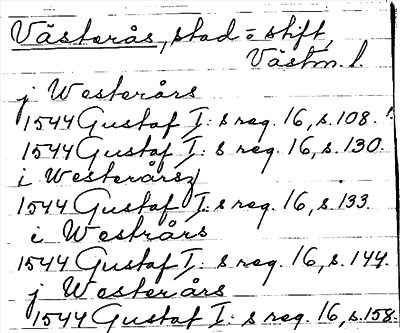 Västerås, stad o stift,
Västm. l
j Westerårs
1544 Gustaf I: s reg. 16, s. 108.
1544 Gustaf I: s reg. 16, s. 130.
i Westerårsz
1544 Gustaf I: s reg. 16, s. 133.
i Westrårs
1544 Gustaf I: s reg. 16, s. 144.
j Westerårs
1544 Gustaf I: s reg. 16, s. 158.